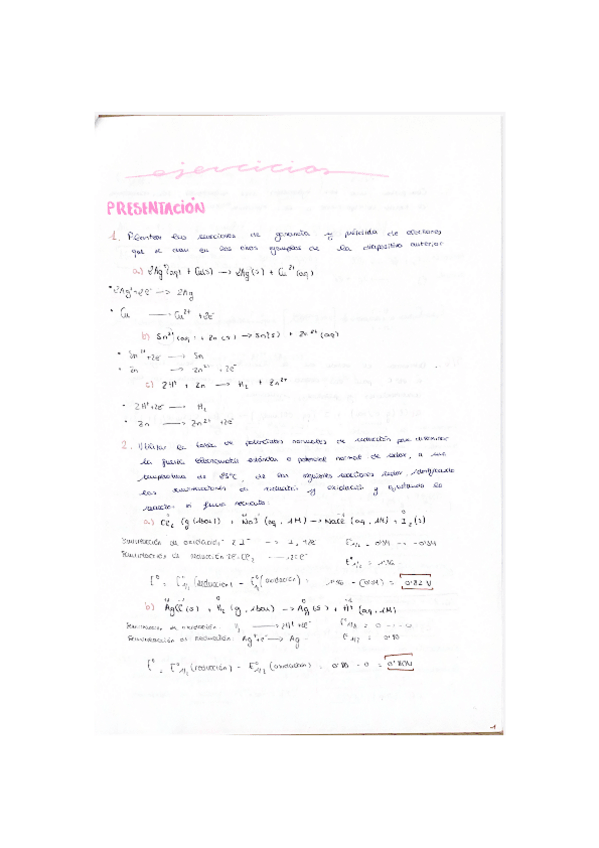 ejercicios
PRESENTACIÓN
1. Plantear las reacciones de ganancia y pérdida de electrones
que se dan en los otros ejemplos de la diapositiva anterior
a) 2Ag⁺(aq) + Cu(s) → 2Ag(s) + Cu²⁺(aq)
• 2Ag⁺+2e⁻ → 2Ag
• Cu → Cu²⁺ +2e⁻
b) Sn²⁺(aq) + Zn(s) → Sn(s) + Zn²⁺(aq)
• Sn²⁺+2e⁻ → Sn
• Zn → Zn²⁺ + 2e⁻
c) 2H⁺ + Zn → H₂ + Zn²⁺
• 2H⁺+2e⁻ → H₂
• Zn → Zn²⁺ +2e⁻
2. Utilizar la tabla de potenciales normales de reducción para
la fuerza electromotriz estándar o potencial normal de a una
temperatura de 25ºC, de las siguientes reacciones identificando
las semirreacciones de reducción y oxidación y ajustando la
reacción si fuese necesario:
a) Cl₂ (g, 1bar) + (aq, 1M) → NaCl (aq, 1M) + I₂(s)
Semirreacción de oxidación: 2I⁻ → I₂ +2e⁻
Semirreacción de reducción:
E° = E°₁/₂ (reducción) - E°₁/₂ (oxidación) = = 0'82 V
b) AgCl(s) + H₂ (g, 1bar) → Ag(s) + H⁺ (aq, 1M)
Semirreacción de oxidación: → 2H⁺ +2e⁻
Semirreacción de reducción: Ag⁺+e⁻ → Ag
E° = E°₁/₂ (reducción) - E°₁/₂ (oxidación) = 0'80 - 0 = 0'80V
1